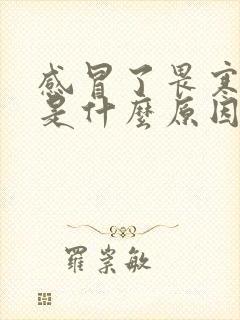 感冒了畏寒
是什麼原因
羅崇敏